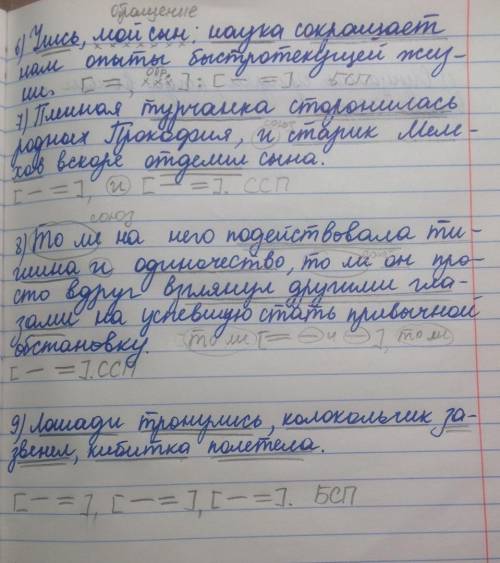 обращение
6) Учись, мой сын: наука сокращает
нам опыты быстротекущей жиз-
ни. [ =, обр. ××× ] : [ — = ]. БСП
7) Пленная турчанка сторонилась
союз
родных Прокофия, и старик Меле-
хов вскоре отделил сына.
[ — = ], и [ — = ]. ССП
союз
8) То ли на него подействовала ти-
шина и одиночество, то ли он про-
сто вдруг взглянул другими гла-
зами на успевшую стать привычной
обстановку. то ли [ = — и — ], то ли
[ — = ]. ССП
9) Лошади тронулись, колокольчик за-
звенел, кибитка полетела.
[ — = ], [ — = ], [ — = ]. БСП